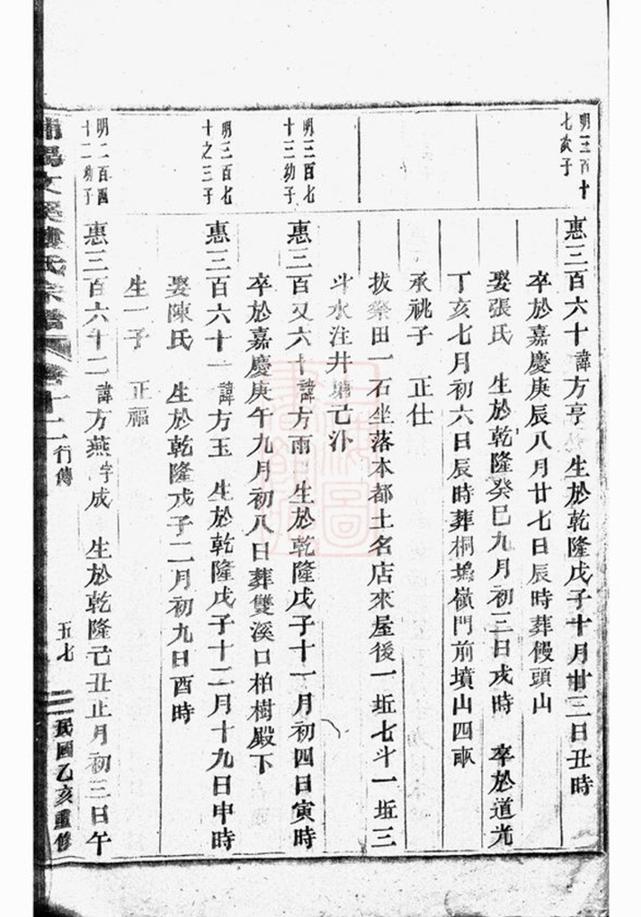 明三百十
七次子
惠三百六十諱方亨 生於乾隆戊子十月廿三日丑時
卒於嘉慶庚辰八月廿七日辰時葬饅頭山
娶張氏 生於乾隆癸巳九月初三日戌時 卒於道光
丁亥七月初六日辰時葬桐塢嶺門前墳山四畝
承祧子 正仕
拔祭田一石坐落本都土名店來屋後一坵七斗一坵三
斗水注井塘
明三百七
十三幼子
惠三百又六十諱方雨 生於乾隆戊子十一月初四日寅時
卒於嘉慶庚午九月初八日葬雙溪口柏樹殿下
明三百七
十之三子
惠三百六十一諱方玉 生於乾隆戊子十二月十九日申時
娶陳氏 生於乾隆戊子二月初九日酉時
生一子 正福
明二百四
十二幼子
惠三百六十二諱方燕字成 生於乾隆己丑正月初三日午
氏宗譜 卷十二 行傳 五七 民國乙亥重修